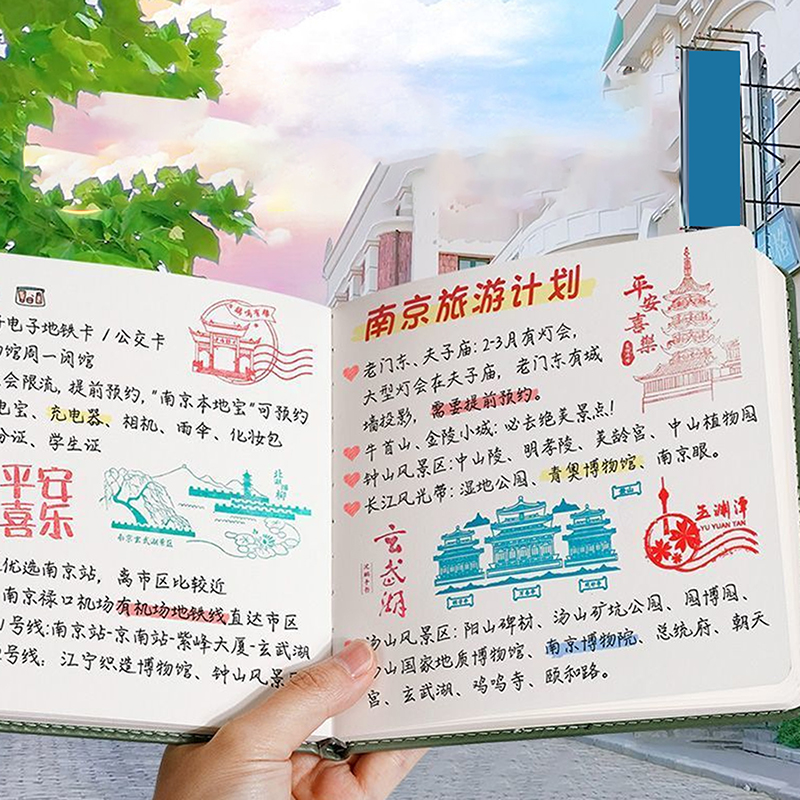 电子地铁卡 / 公交卡
馆周一闭馆
会限流, 提前预约, "南京本地宝"可预约
电宝、充电器、相机、雨伞、化妆包
份证、学生证
平安
喜乐
南京玄武湖景区
优选南京站, 离市区比较近
南京禄口机场有机场地铁线直达市区
号线:南京站-京南站-紫峰大厦-玄武湖
号线: 江宁织造博物馆、钟山风景区
南京旅游计划
平安喜乐
老门东、夫子庙: 2-3月有灯会,
大型灯会在夫子庙, 老门东有城
墙投影, 需要提前预约。
牛首山、金陵小城: 必去绝美景点!
钟山风景区: 中山陵、明孝陵、美龄宫、中山植物园
长江风光带: 湿地公园、青奥博物馆、南京眼。
玄武湖
玉渊潭
YU YUAN TAN
汤山风景区: 阳山碑材、汤山矿坑公园、园博园、
汤山国家地质博物馆、南京博物院、总统府、朝天
宫、玄武湖、鸡鸣寺、颐和路。